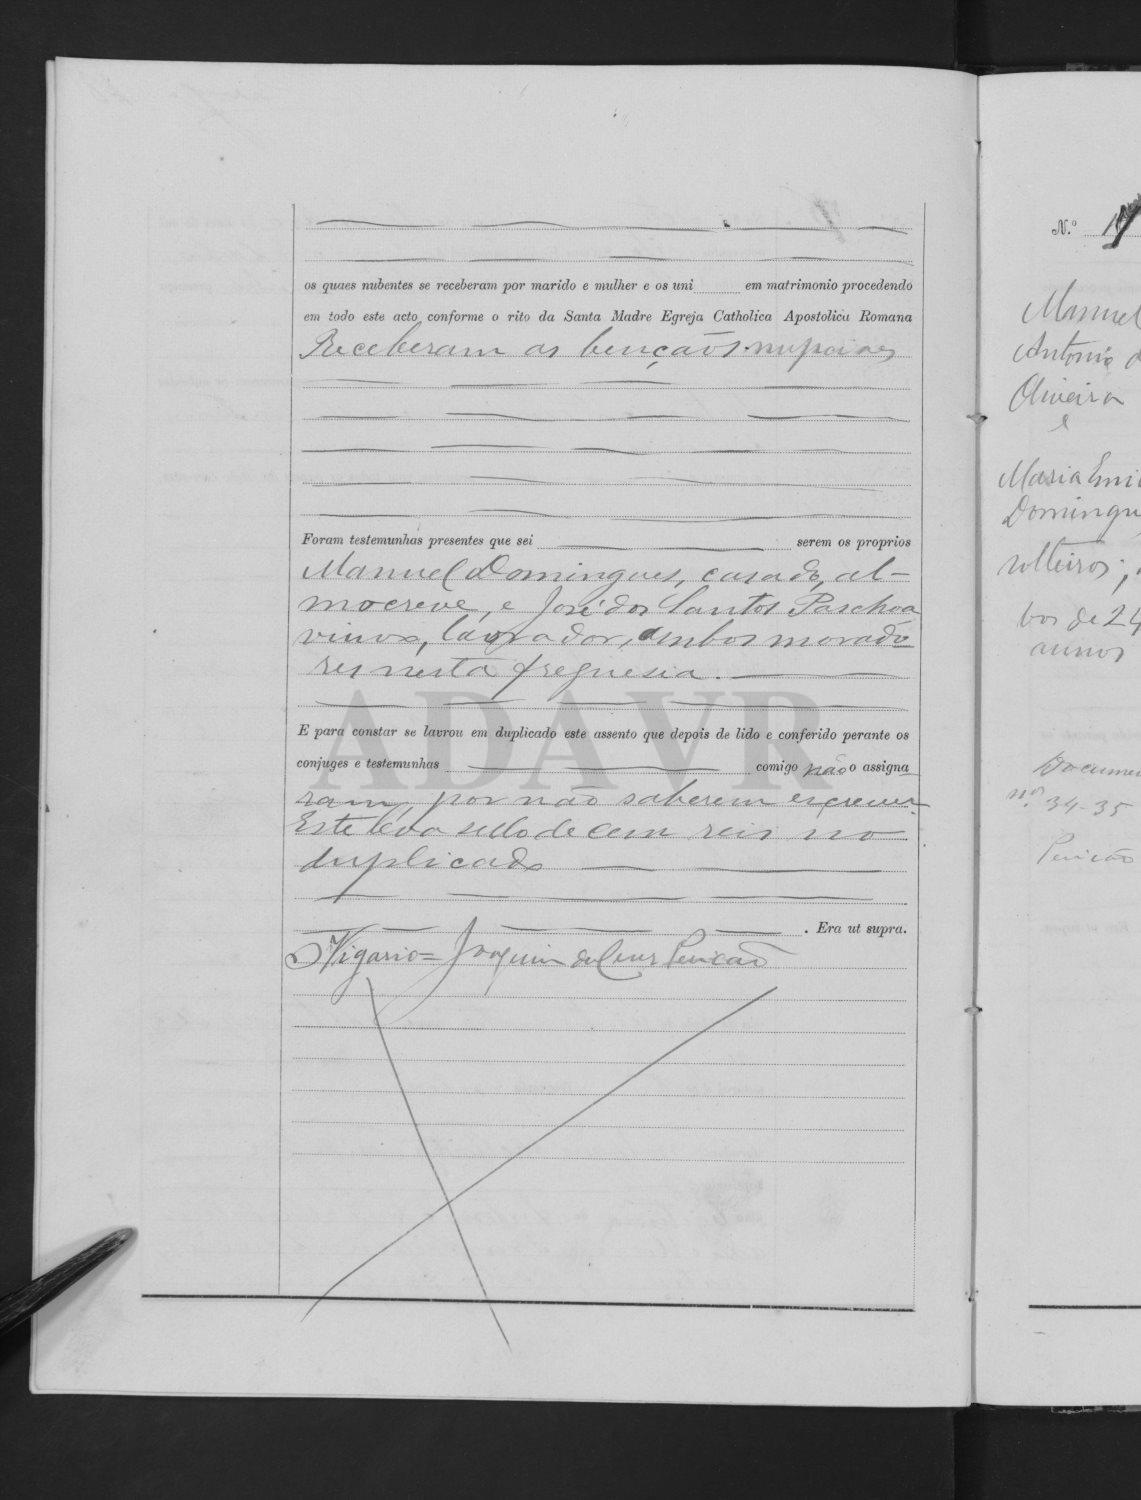 os quaes nubentes se receberam por marido e mulher e os uni em matrimonio procedendo
em todo este acto conforme o rito da Santa Madre Egreja Catholica Apostolica Romana
Receberam as bençãos nupciaes
Foram testemunhas presentes que sei serem os proprios
Manuel Domingues, casado, al-
mocreve, e José dos Santos Paschoa
viuvo, lavrador, ambos morado
res nesta freguesia.
ADAVR
E para constar se lavrou em duplicado este assento que depois de lido e conferido perante os
conjuges e testemunhas comigo não o assigna
ram, por não saberem escrever.
Este leva sello de cem reis no
duplicado
. Era ut supra.
O Vigario = Joaquim da Cruz
N.º
Manuel
Antonio d
Oliveira
e
Maria Emi
Domingu
solteiros;
bos de 24
annos
Documen
n.os 34-35